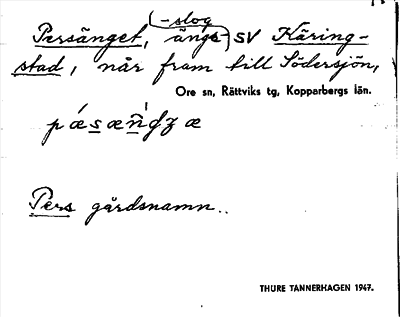 (-slog
Persänget, änge-) SV Käring-
stad, når fram till Södersjön,
Ore sn, Rättviks tg, Kopparbergs län.
Pers gårdsnamn..
THURE TANNERHAGEN 1947.